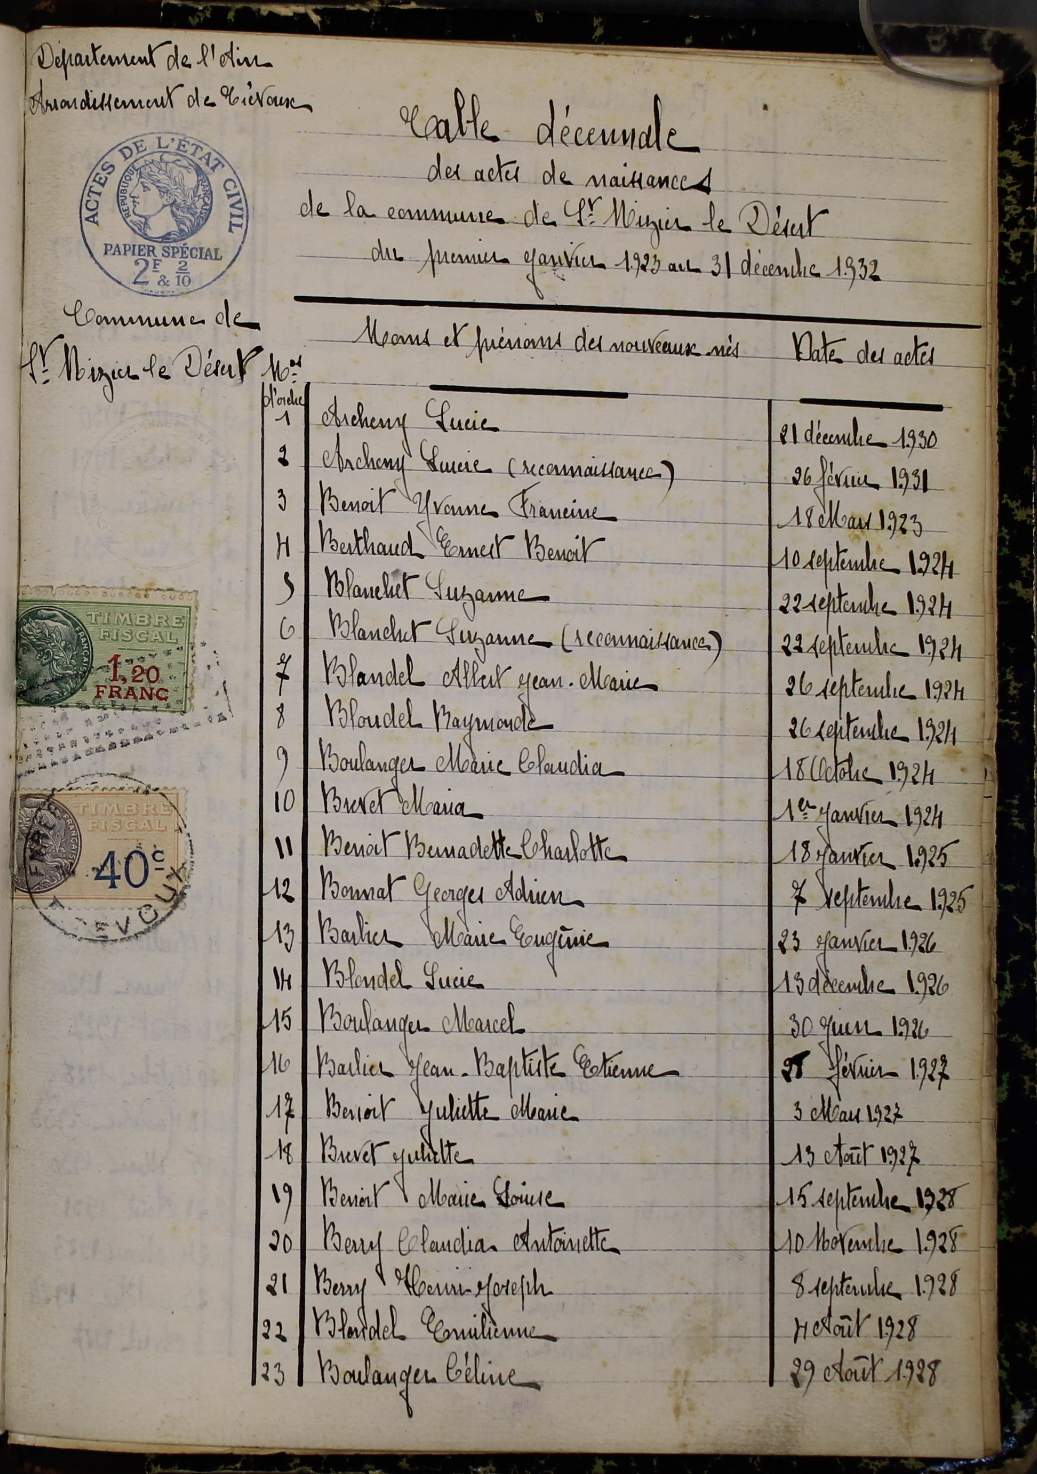 Département de l'Ain
Arrondissement de Trévoux
ACTES DE L'ÉTAT CIVIL
RÉPUBLIQUE FRANÇAISE
PAPIER SPÉCIAL
2F & 2/10
Table décennale
des actes de naissances
de la commune de St Nizier le Désert
du premier janvier 1923 au 31 décembre 1932
Commune de
St Nizier le Désert
Nos d'ordre Noms et prénoms des nouveaux nés Date des actes
1 Archeny Lucie 21 décembre 1930
2 Archeny Lucie (reconnaissance) 26 février 1931
3 Benoit Yvonne Francine 18 Mars 1923
4 Berthaud Ernest Benoit 10 septembre 1924
5 Blanchet Suzanne 22 septembre 1924
6 Blanchet Suzanne (reconnaissance) 22 septembre 1924
7 Blondel Albert Jean-Marie 26 septembre 1924
8 Blondel Raymonde 26 septembre 1924
9 Boulanger Marie Claudia 18 Octobre 1924
10 Brevet Maria 1er Janvier 1924
11 Benoit Bernadette Charlotte 18 Janvier 1925
12 Bonnat Georges Adrien 7 septembre 1925
13 Barlier Marie Eugénie 23 Janvier 1926
14 Blondel Lucie 13 décembre 1926
15 Boulanger Marcel 30 Juin 1926
16 Barlier Jean-Baptiste Etienne février 1927
17 Benoit Juliette Marie 3 Mars 1927
18 Brevet Juliette 13 Août 1927
19 Benoit Marie Louise 15 septembre 1928
20 Berry Claudia Antoinette 10 Novembre 1928
21 Berry Henri-Joseph 8 septembre 1928
22 Blondel Emilienne 4 Août 1928
23 Boulanger Céline 29 Août 1928
TIMBRE
FISCAL
1,20
FRANC
TIMBRE
FISCAL
40c
TREVOUX